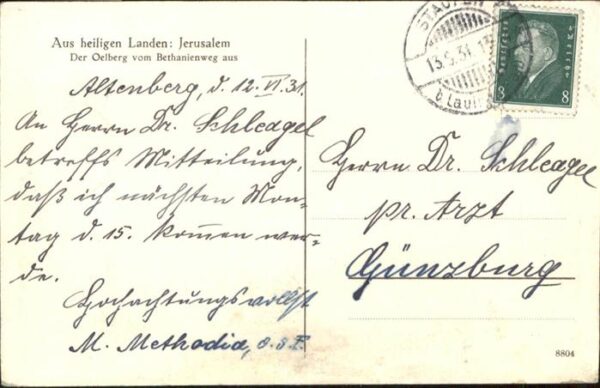 Aus heiligen Landen: Jerusalem
Der Oelberg vom Bethanienweg aus
Altenberg, d. 12. VI. 31.
An Herrn Dr. Schleagel
betreffs Mitteilung,
daß ich nächsten Mon-
tag d. 15. kommen wer-
de.
Hochachtungsvollst
M. Methodia, O.S.F.
STAUFEN
13.6.31.
b Laui
Deutsches Reich
8 8
Herrn Dr. Schleagel
pr. Arzt
Günzburg
8804